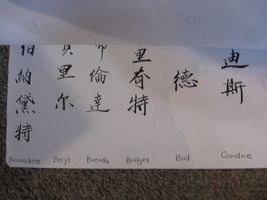 伯納黛特
貝里尔
布倫達
里奇特
德
迪斯
Bernadette
Beryl
Brenda
Bridget
Bird
Candice